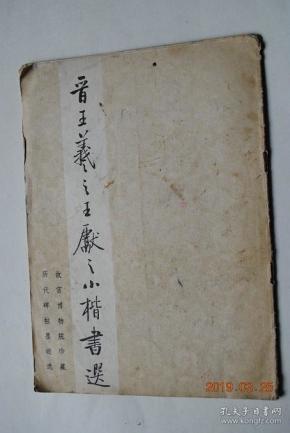 晋王羲之王獻之小楷書選
故宫博物院珍藏
历代碑帖墨迹选
2019.03.25
孔夫子旧书网